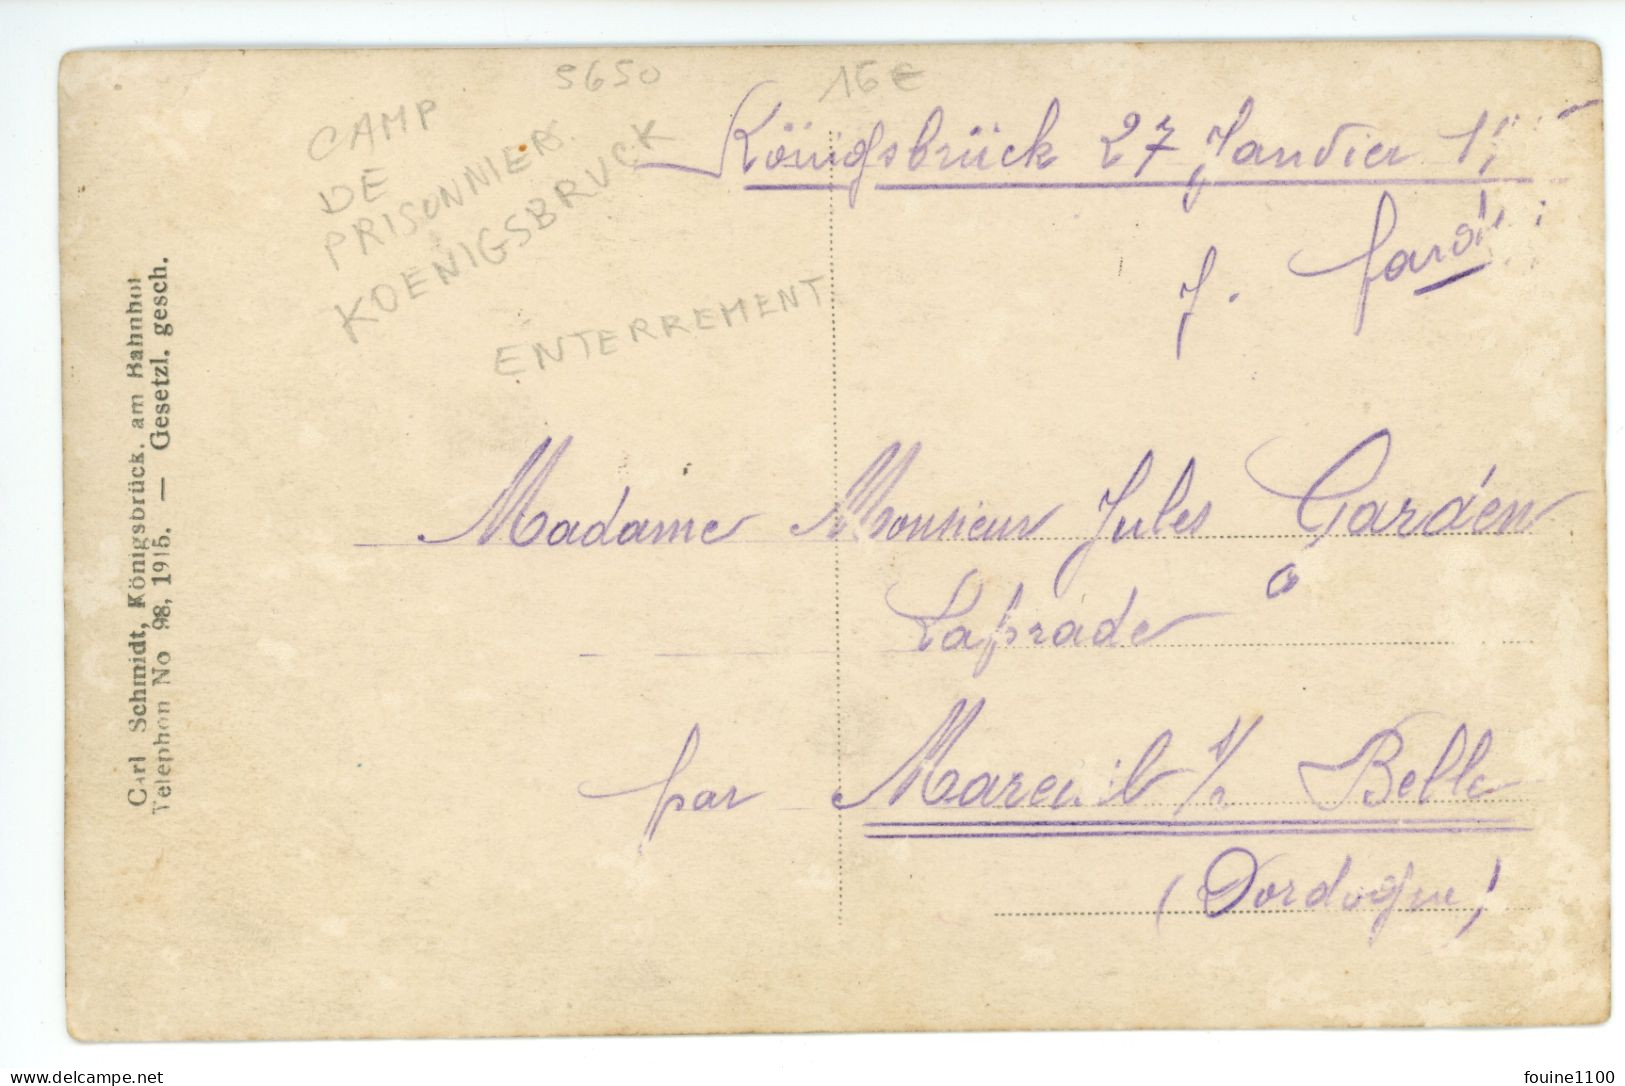 5650
16€
CAMP
DE
PRISONNIERS
KOENIGSBRUCK
ENTERREMENT
Königsbrück 27 Janvier
J.
Carl Schmidt, Königsbrück. am Bahnhof
Telephon No 98, 1915. — Gesetzl. gesch.
Madame Monsieur Jules Garden
à
Laprade
par Mareuil s/ Belle
(Dordogne)
www.delcampe.net
fouine1100